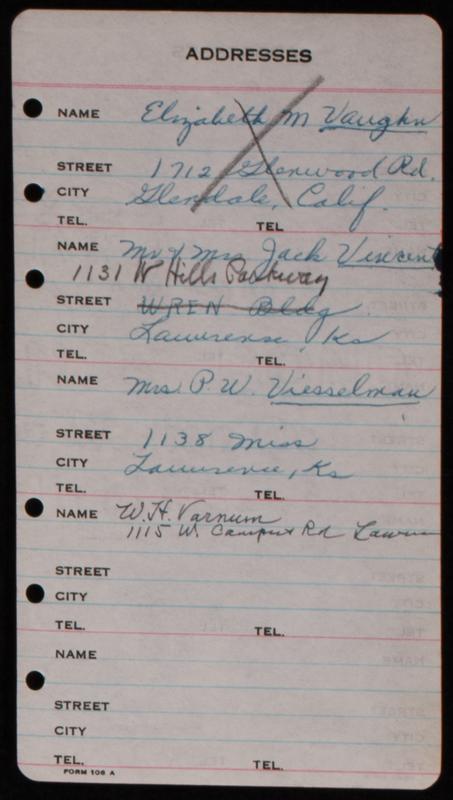 ADDRESSES
NAME Elizabeth M Vaughn
STREET 1712 Glenwood Rd.
CITY Glendale, Calif.
TEL. TEL
NAME Mr & Mrs Jack Vincent
1131 W Hills Parkway
STREET WREN Bldg
CITY Lawrense, Ks
TEL. TEL.
NAME Mrs. P. W. Viesselman
STREET 1138 Miss
CITY Lawrence, Ks
TEL. TEL.
NAME W. H. Varnum
1115 W. Campus Rd Lawren
STREET
CITY
TEL. TEL.
NAME
STREET
CITY
TEL. TEL.
FORM 106 A